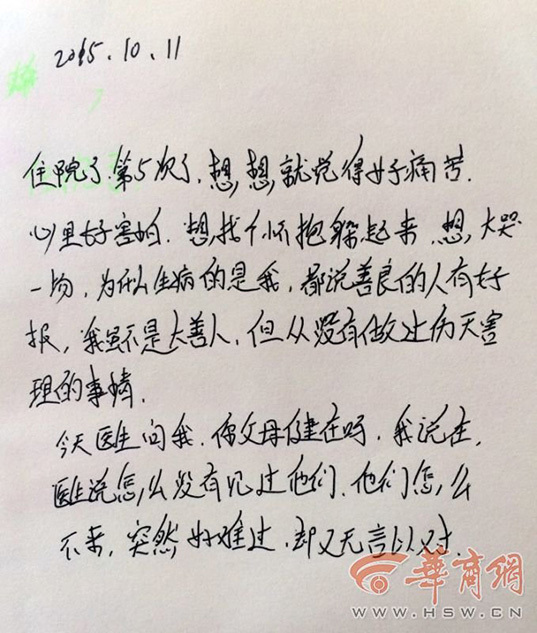 2015.10.11
住院了.第5次了.想,想就觉得好痛苦.
心里好害怕.想找个怀抱躲起来.想,大哭
一场,为什么生病的是我,都说善良的人有好
报,我虽不是大善人,但从没有做过伤天害
理的事情.
今天医生问我.你父母健在吗.我说在.
医生说怎么没有见过他们.他们怎么
不来,突然好难过.却又无言以对.
华商网
WWW.HSW.CN